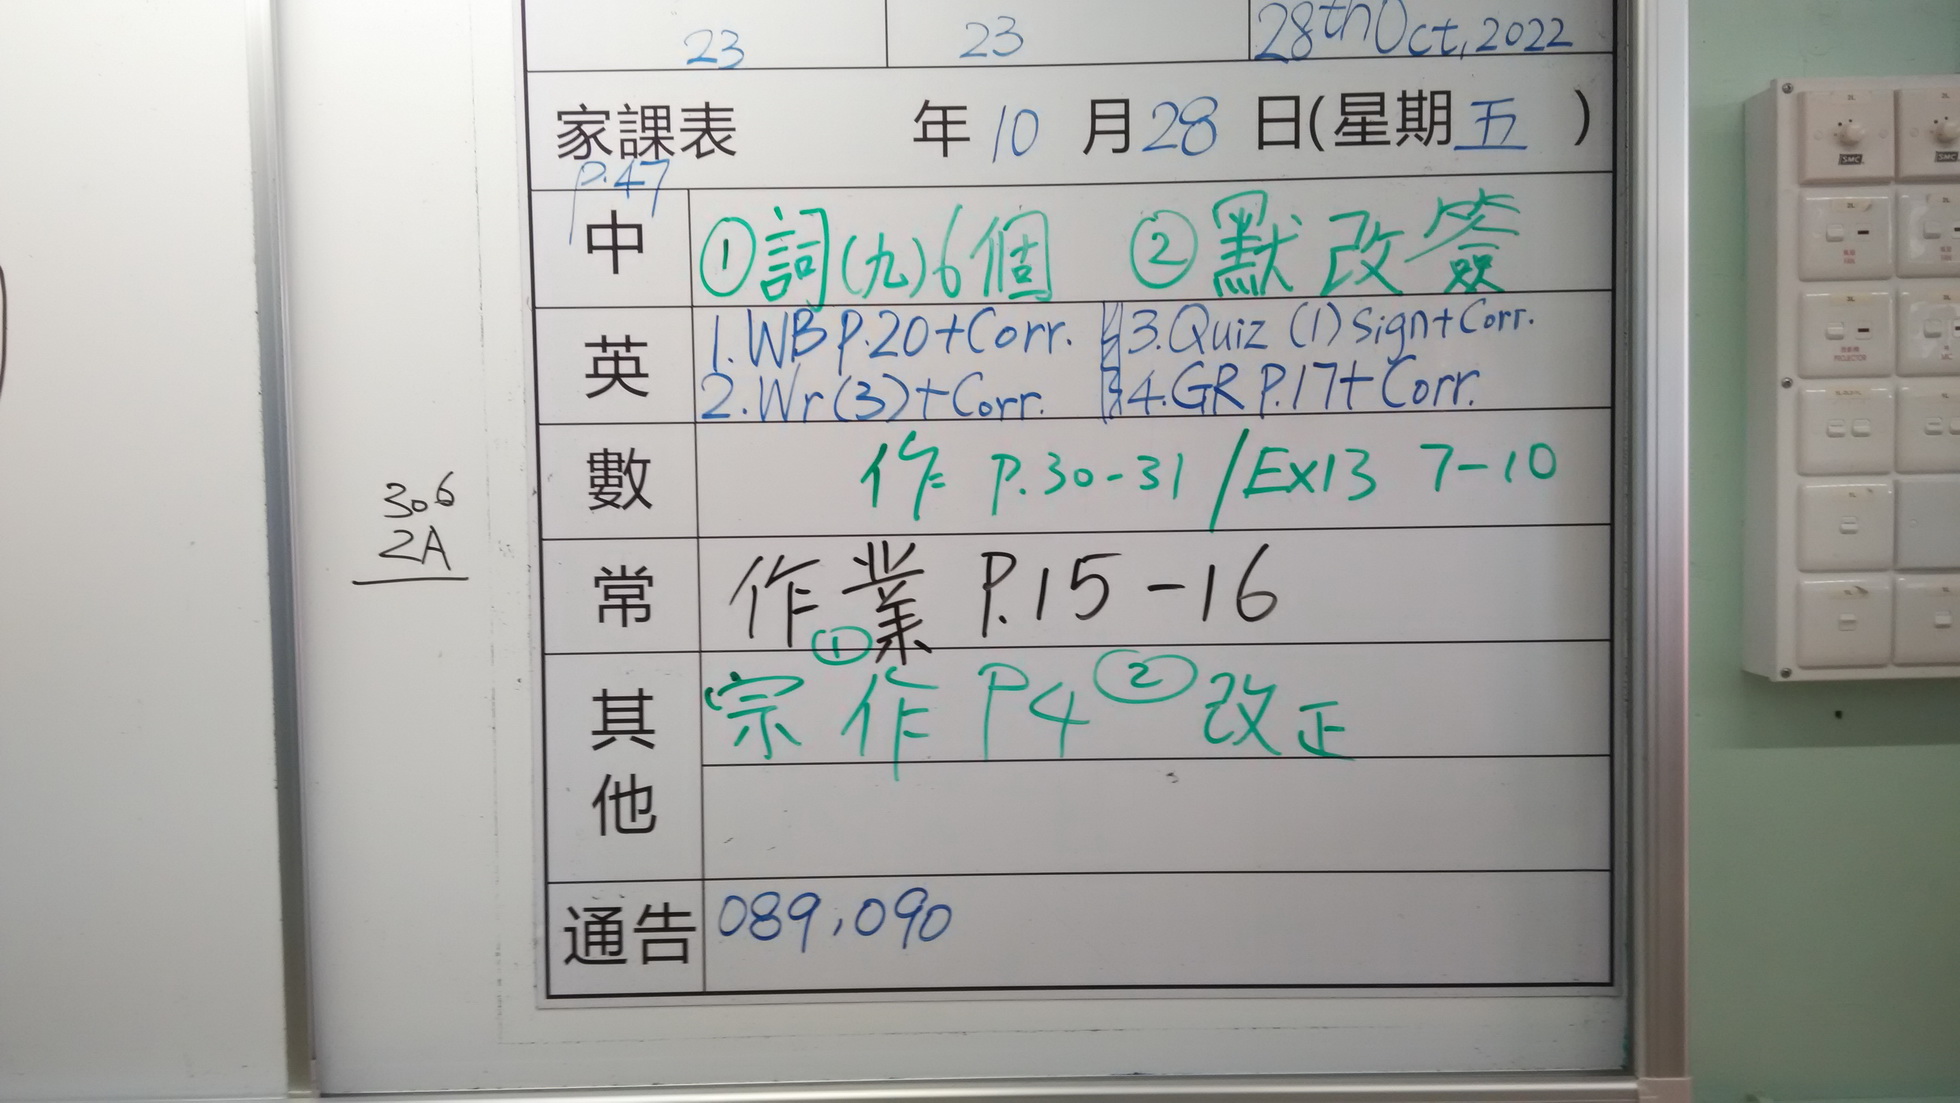 23 23 28th Oct, 2022
家課表 年 10 月 28 日(星期 五 )
P.47
中 ①詞(九)6個 ②默改簽
英 1. WB P.20+Corr. 3. Quiz (1) Sign+Corr.
2. Wr(3)+Corr. 4. GR P.17+Corr.
數 作 P.30-31 / Ex13 7-10
306
2A
常 作業 P.15-16
其他 ①宗 作 P4 ②改正
通告 089,090
SMC
SMC